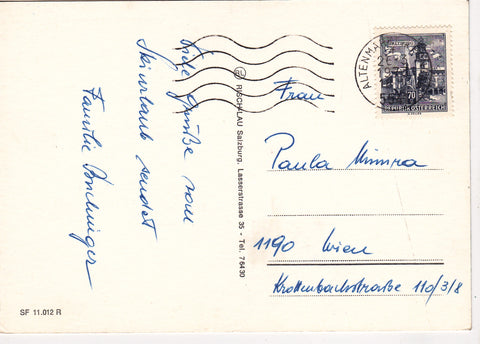 Viele Grüße vom
Skiurlaub sendet
Familie
RISCHLAU Salzburg, Lasserstrasse 35 - Tel. 76430
SF 11.012 R
ALTENMARKT
70
REPUBLIK ÖSTERREICH
Frau
Paula
1190 Wien
Krottenbachstraße 110/3/8